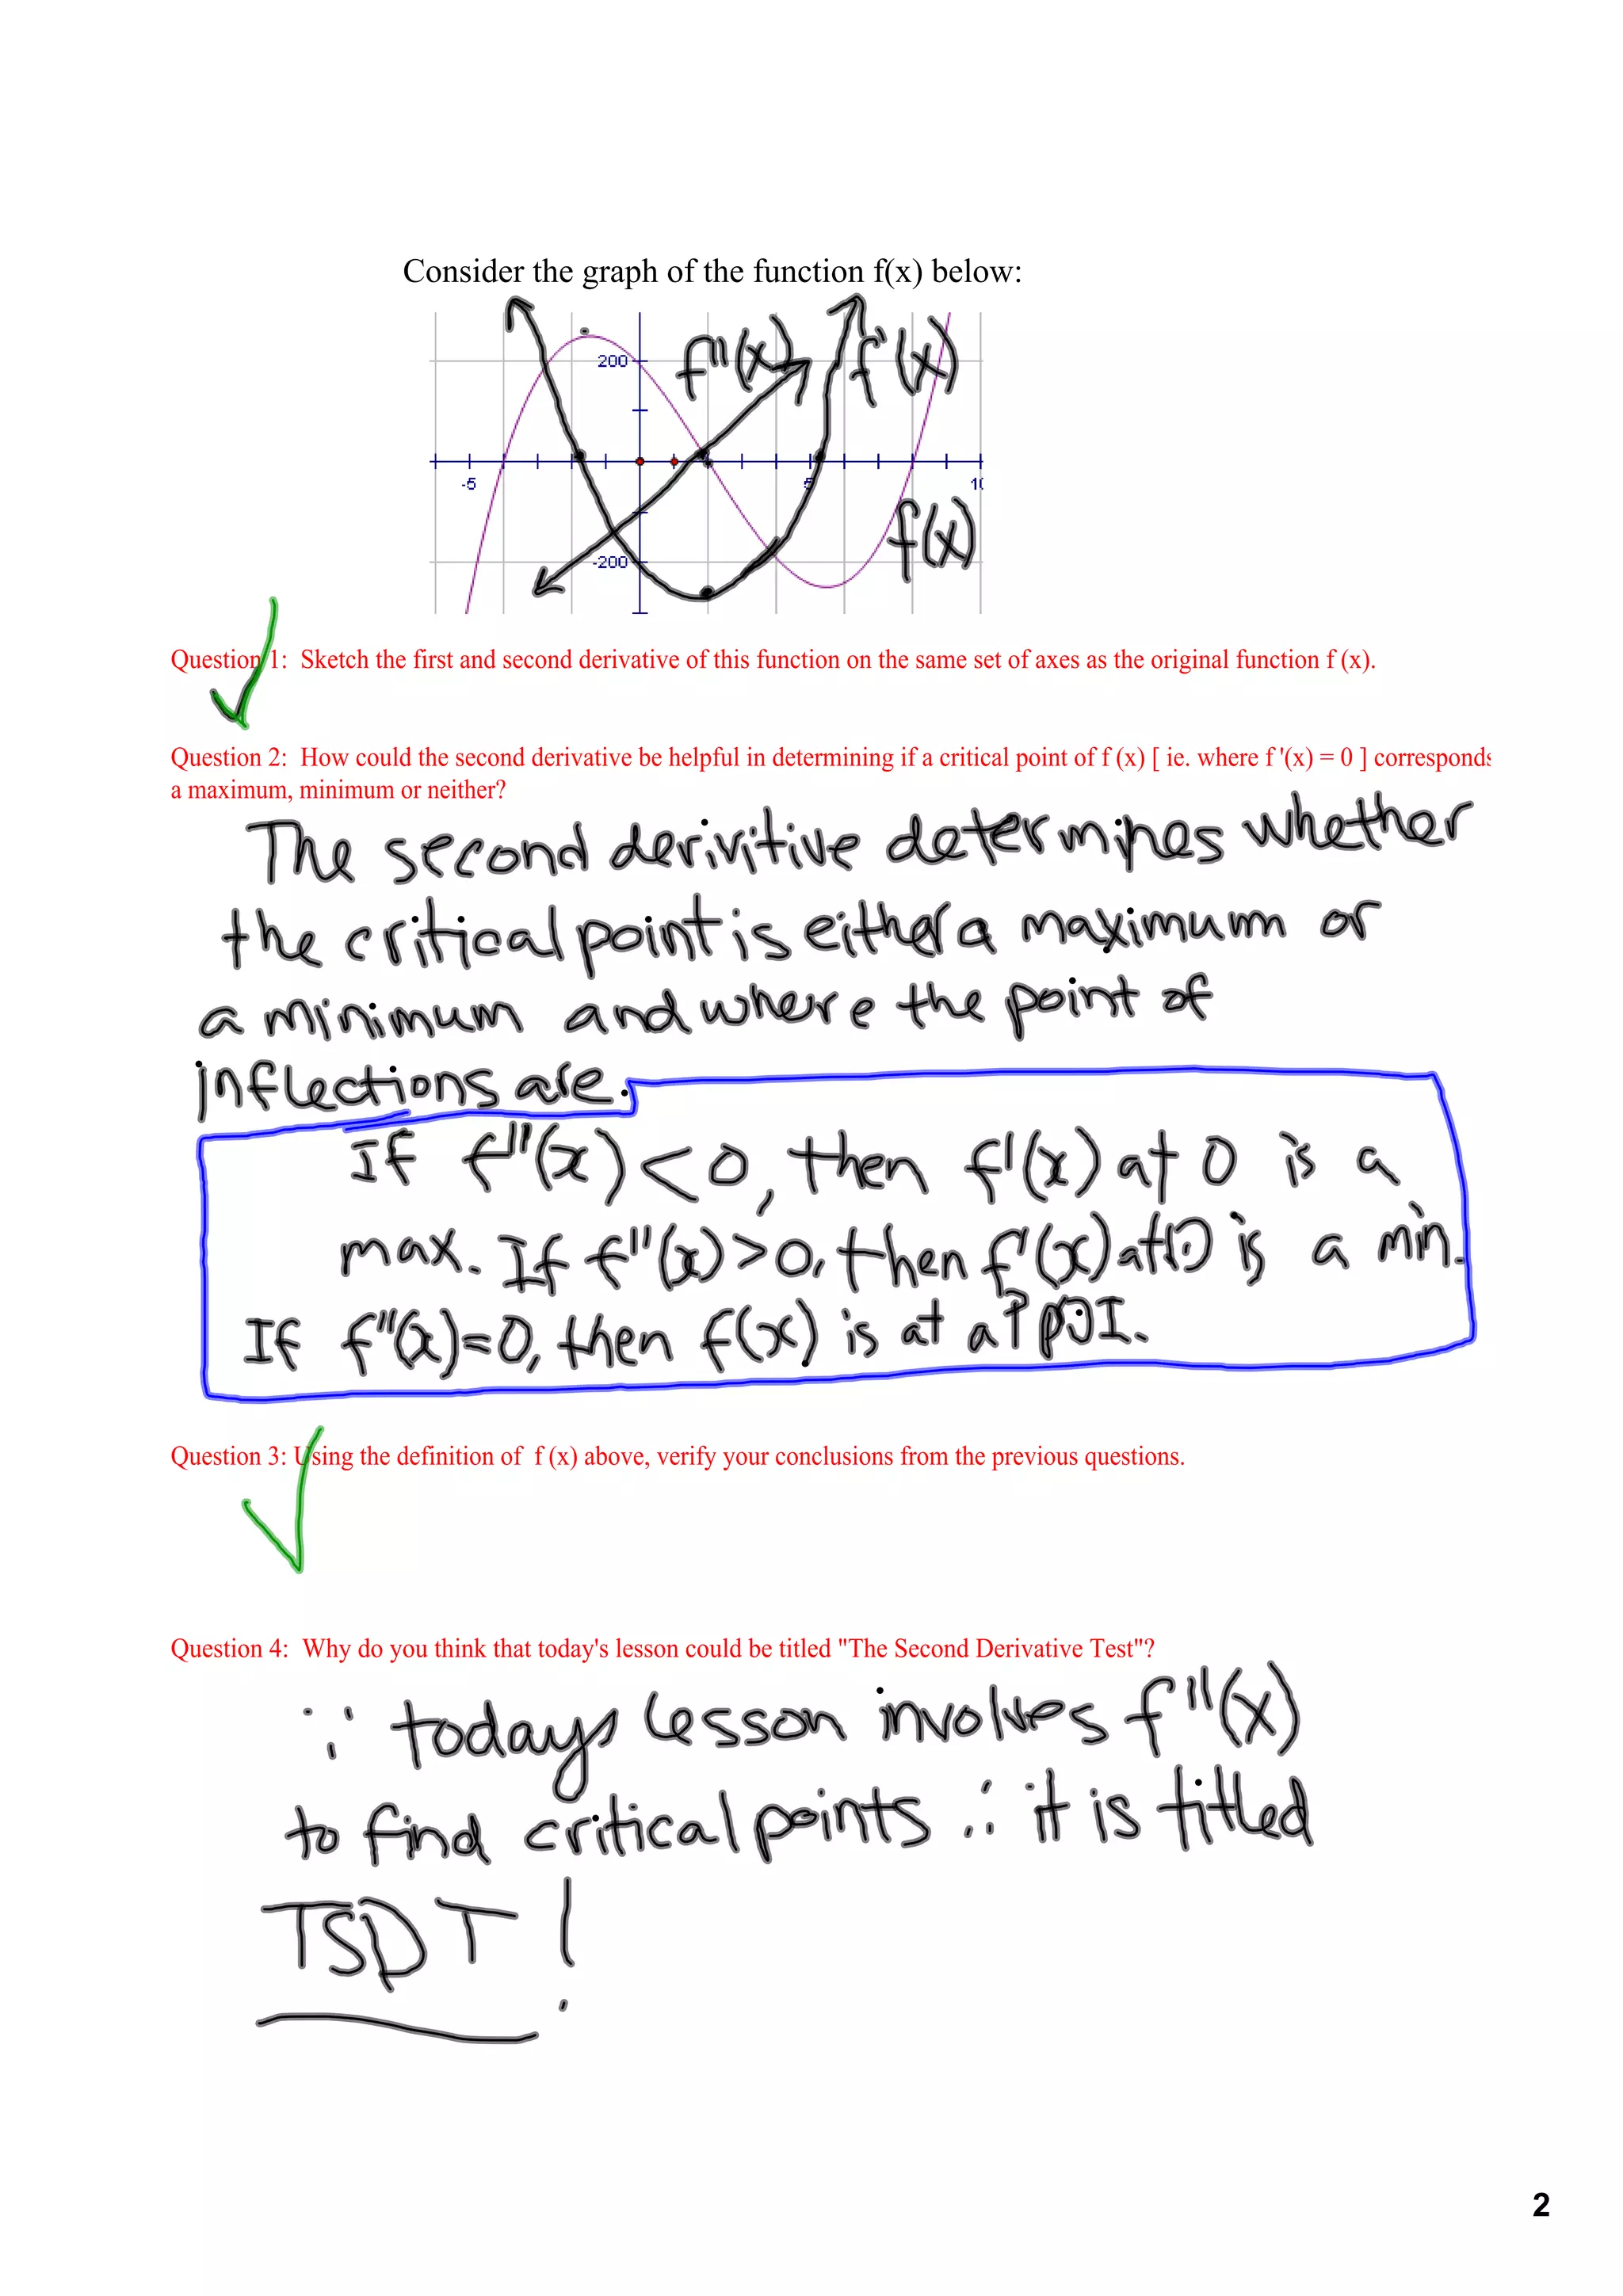 Consider the graph of the function f(x) below:
f''(x) f'(x)
200
-5 5 10
f(x)
-200
Question 1: Sketch the first and second derivative of this function on the same set of axes as the original function f (x).
Question 2: How could the second derivative be helpful in determining if a critical point of f (x) [ ie. where f '(x) = 0 ] corresponds
a maximum, minimum or neither?
The second derivitive determines whether
the critical point is either a maximum or
a minimum and where the point of
inflections are.
If f''(x) < 0, then f'(x) at 0 is a
max. If f''(x) > 0, then f'(x) at 0 is a min.
If f''(x) = 0, then f(x) is at a POI.
Question 3: Using the definition of f (x) above, verify your conclusions from the previous questions.
Question 4: Why do you think that today's lesson could be titled "The Second Derivative Test"?
∵ todays lesson involves f''(x)
to find critical points ∴ it is titled
TSDT!
2